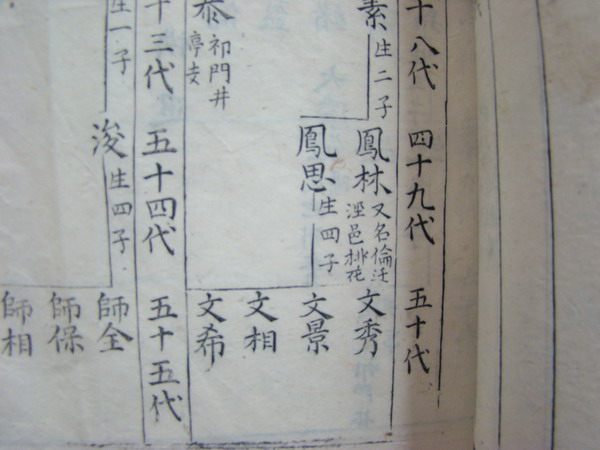 十八代
四十九代
五十代
素 生二子
鳳林 又名倫迁
涇邑桃花
鳳思 生四子
文秀
文景
文相
文希
泰 祁門井
亭支
十三代
五十四代
五十五代
生一子
浚 生四子
師全
師保
師相